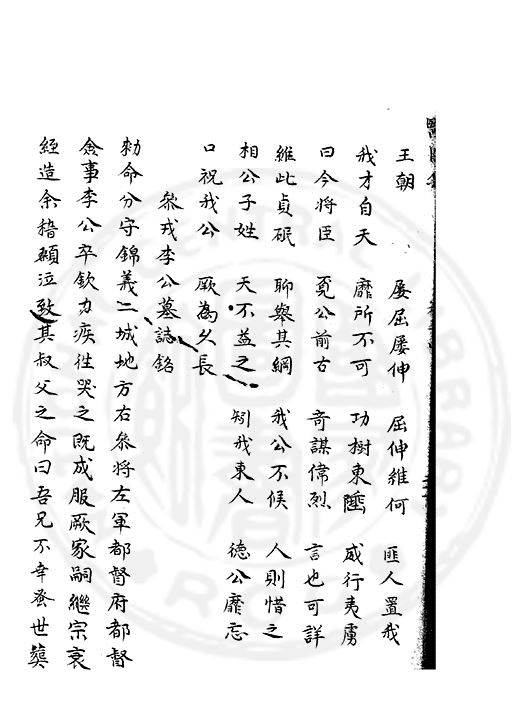 王朝　屡屈屡伸　屈伸維何　匪人置我
我才自天　靡所不可　功樹東陲　威行夷虜
曰今將臣　覔公前古　奇謀偉烈　言也可詳
維此貞珉　聊舉其綱　我公不候　人則惜之
相公子姓　天不益之　矧我東人　德公靡忘
口祝我公　厥為久長
叅戎李公墓誌銘
勑命分守錦義二城地方右叅將左軍都督府都督
僉事李公卒欽力疾徃哭之既成服厥家嗣繼宗衰
絰造余稽顙泣致其叔父之命曰吾兄不幸蚤世葬